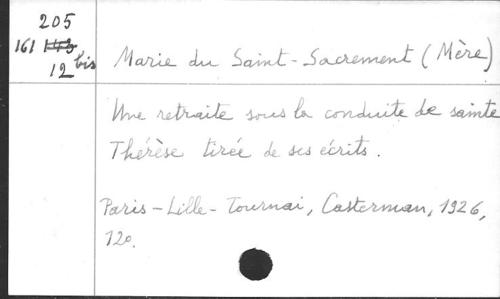 205
161 143
12 bis
Marie du Saint-Sacrement (Mère)
Une retraite sous la conduite de sainte
Thérèse tirée de ses écrits.
Paris-Lille-Tournai, Casterman, 1926,
12o.